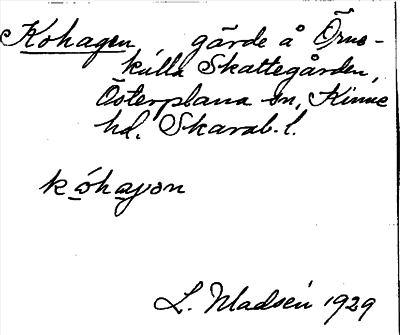 Kohagen gärde å Örne-
kulla Skattegården,
Österplana sn, Kinne
hd, Skarab. l.
kóhagon
L. Madsén 1929